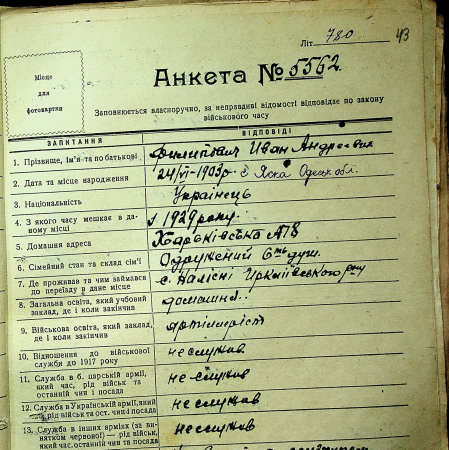 Літ. 780 43
Місце
для
фотокартки
Анкета № 5562
Заповнюється власноручно, за неправдиві відомості відповідає по закону
військового часу
ЗАПИТАННЯ ВІДПОВІДІ
1. Прізвище, ім'я та по батькові Филипович Иван Андреевич
2. Дата та місце народження 24/VI-1903р. с Яска Одеськ обл.
3. Національність Українець
4. З якого часу мешкає в да-
ному місці з 1929 року.
5. Домашня адреса Харьківська
6. Сімейний стан та склад сім'ї Одружений 6ть душ.
7. Де проживав та чим займався
до переїзду в дане місце с.
8. Загальна освіта, який учбовий
заклад, де і коли закінчив домашня.
9. Військова освіта, який заклад,
де і коли закінчив артілеріст
10. Відношення до військової
служби до 1917 року неслужив.
11. Служба в б. царській армії,
який час, рід військ та
останній чин і посада не служив
12. Служба в Українській армії, який
час, рід військ та ост. чин і посада неслужив
13. Служба в інших арміях (за ви-
нятком червоної) — рід військ,
який час, останній чин та посада неслужив